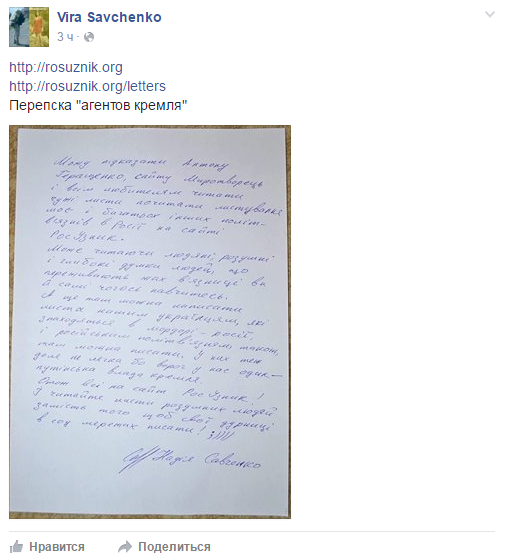 Vira Savchenko
3 ч ·
http://rosuznik.org
http://rosuznik.org/letters
Перепска "агентов кремля"
Можу підказати Антону
Геращенко, сайту Миротворець
і всім любителям читати
чужі листи почитати листування
моє і багатьох інших політ-
в'язнів в Росії на сайті
РосУзник.
Може читаючи людяні розумні
і глибокі думки людей, що
переживають жах в'язниці ви
й самі чогось навчитесь.
А ще там можна написати
листа нашим українцям, які
знаходяться в мордорі-росії,
і російським політв'язням, також,
там можна писати. У них теж
доля не легка бо ворог у нас один -
путінська влада кремля.
всі на сайт РосУзник!
І читайте листи розумних людей
замість того щоб свої дурниці
в соц мережах писати! :))))
Надія Савченко
Нравится
Поделиться